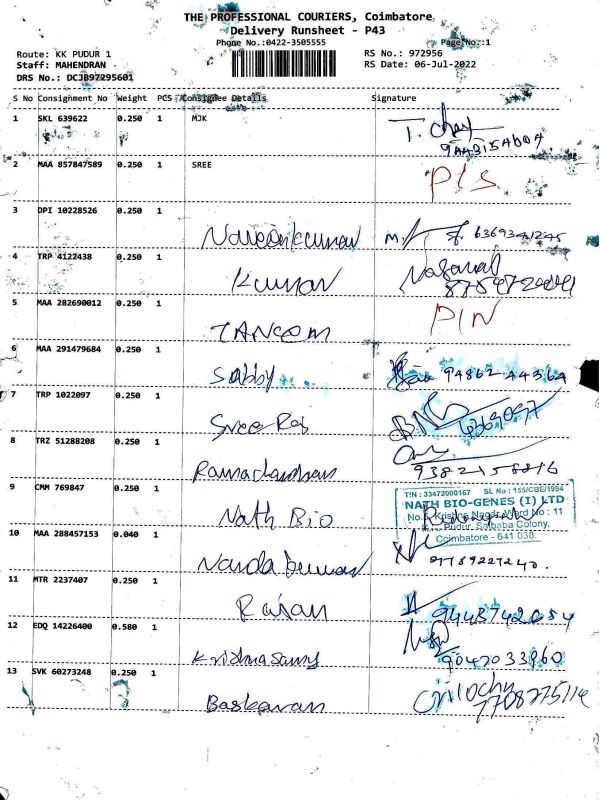 THE PROFESSIONAL COURIERS, Coimbatore
Delivery Runsheet - P43
Phone No.:0422-3505555
Page No.:1
Route: KK PUDUR 1
RS No.: 972956
Staff: MAHENDRAN
RS Date: 06-Jul-2022
DRS No.: DCJB97295601
S No Consignment No Weight PCS Consignee Details Signature
1 SKL 639622 0.250 1 MJK
2 MAA 857847589 0.250 1 SREE
3 DPI 10228526 0.250 1 Naveenkumar
4 TRP 4122438 0.250 1 Kumar
5 MAA 282690012 0.250 1 TANCOM PIN
6 MAA 291479684 0.250 1 Sabby 94862 44364
7 TRP 1022097 0.250 1 Sree Raj
8 TRZ 51288208 0.250 1 Ramachandran
9 CMM 769847 0.250 1 Nath Bio
TIN : 33472000167 SL No : 155/CBE/1994
NATH BIO-GENES (I) LTD
No. Krishna Nagar Ward No : 11
Pudur, Saibaba Colony,
Coimbatore - 641 038.
10 MAA 288457153 0.040 1 Nandakumar
11 MTR 2237407 0.250 1 Rajan
12 EDQ 14226400 0.580 1 Krishnasamy 9047033960
13 SVK 60273248 0.250 1 Baskaran